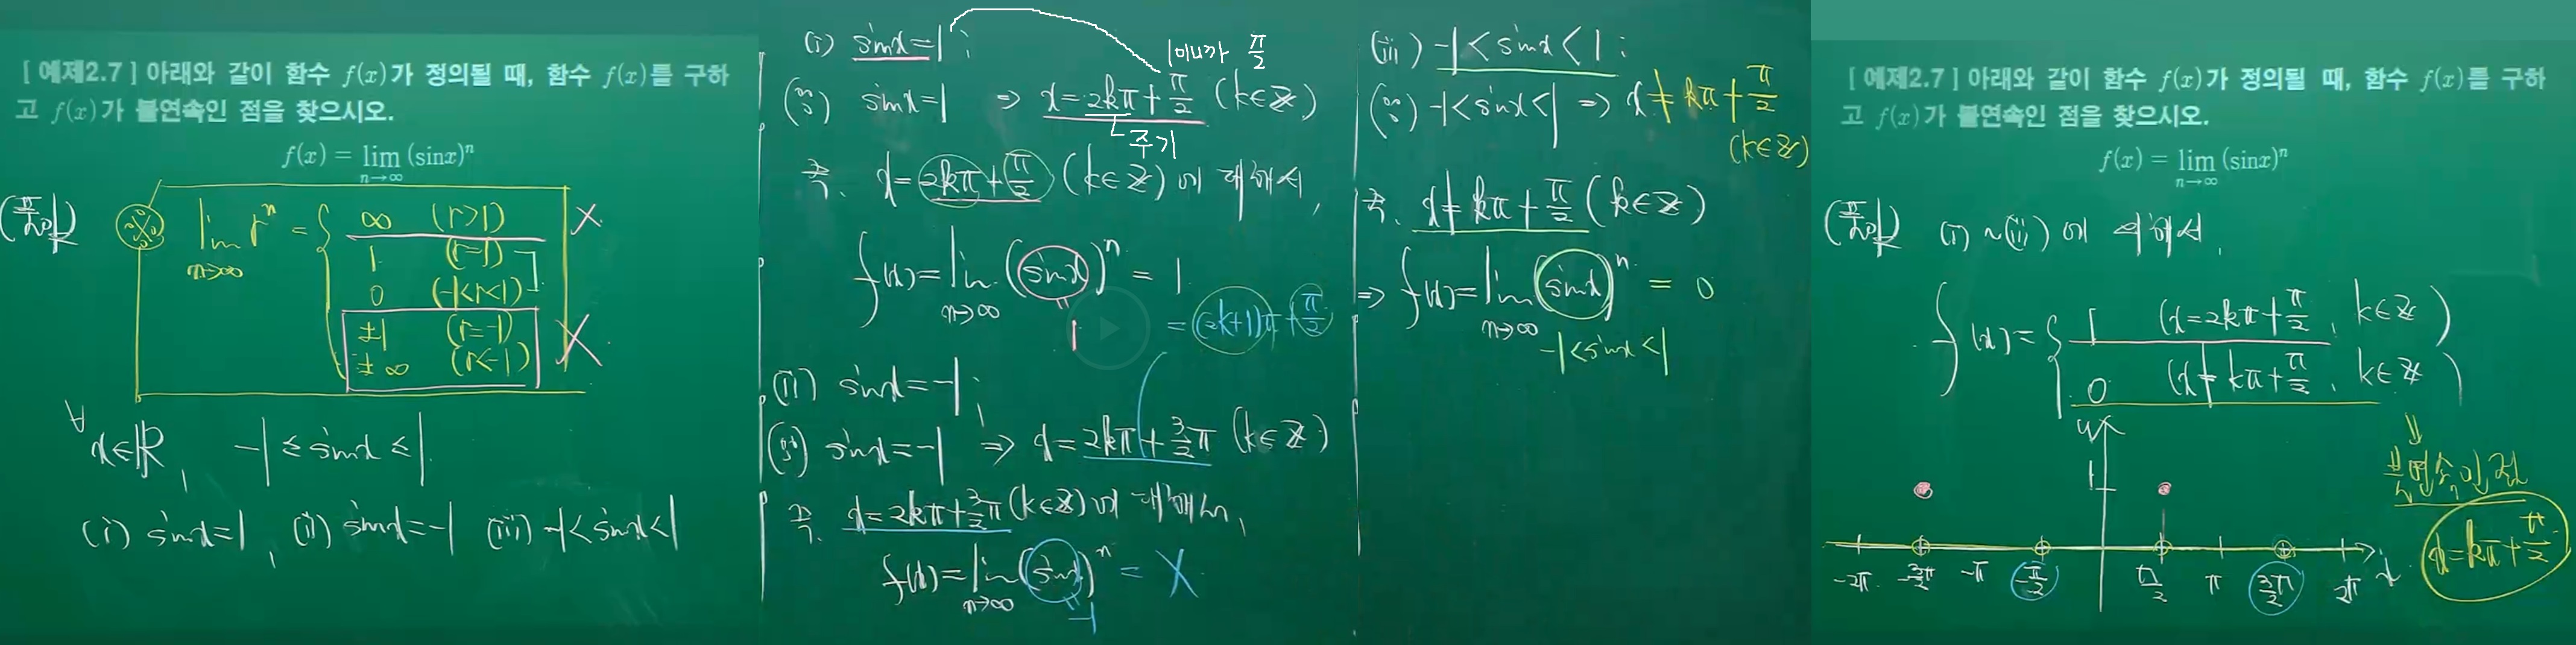 [ 예제2.7 ] 아래와 같이 함수 f(x)가 정의될 때, 함수 f(x)를 구하
고 f(x)가 불연속인 점을 찾으시오.
f(x) = lim (sinx)ⁿ
n→∞
(풀이)
lim rⁿ = { ∞ (r>1) X
n→∞
1 (r=1)
0 (-1<r<1)
±1 (r=-1)
±∞ (r<-1) X
∀x∈ℝ, -1 ≤ sinx ≤ 1
(i) sinx=1, (ii) sinx=-1 (iii) -1<sinx<1
(i) sinx=1 ; 1이니까 π/2
sinx=1 ⇒ x=2kπ+π/2 (k∈ℤ)
주기
즉. x=2kπ+π/2 (k∈ℤ)에 대해서,
f(x)=lim (sinx)ⁿ = 1
n→∞
1
= (2k+1)π+π/2
(ii) sinx=-1 ;
sinx=-1 ⇒ x=2kπ+3/2π (k∈ℤ)
즉. x=2kπ+3/2π (k∈ℤ)에 대해서,
f(x)=lim (sinx)ⁿ = X
n→∞
-1
(iii) -1<sinx<1 ;
-1<sinx<1 ⇒ x≠kπ+π/2
(k∈ℤ)
즉. x≠kπ+π/2 (k∈ℤ)
⇒ f(x)=lim (sinx)ⁿ = 0
n→∞
-1<sinx<1
[ 예제2.7 ] 아래와 같이 함수 f(x)가 정의될 때, 함수 f(x)를 구하
고 f(x)가 불연속인 점을 찾으시오.
f(x) = lim (sinx)ⁿ
n→∞
(풀이) (i)~(iii)에 의해서,
f(x)={ 1 (x=2kπ+π/2, k∈ℤ)
0 (x≠kπ+π/2, k∈ℤ)
⇓
불연속인 점
x=kπ+π/2
y
1
-2π -3/2π -π -π/2 π/2 π 3/2π 2π x